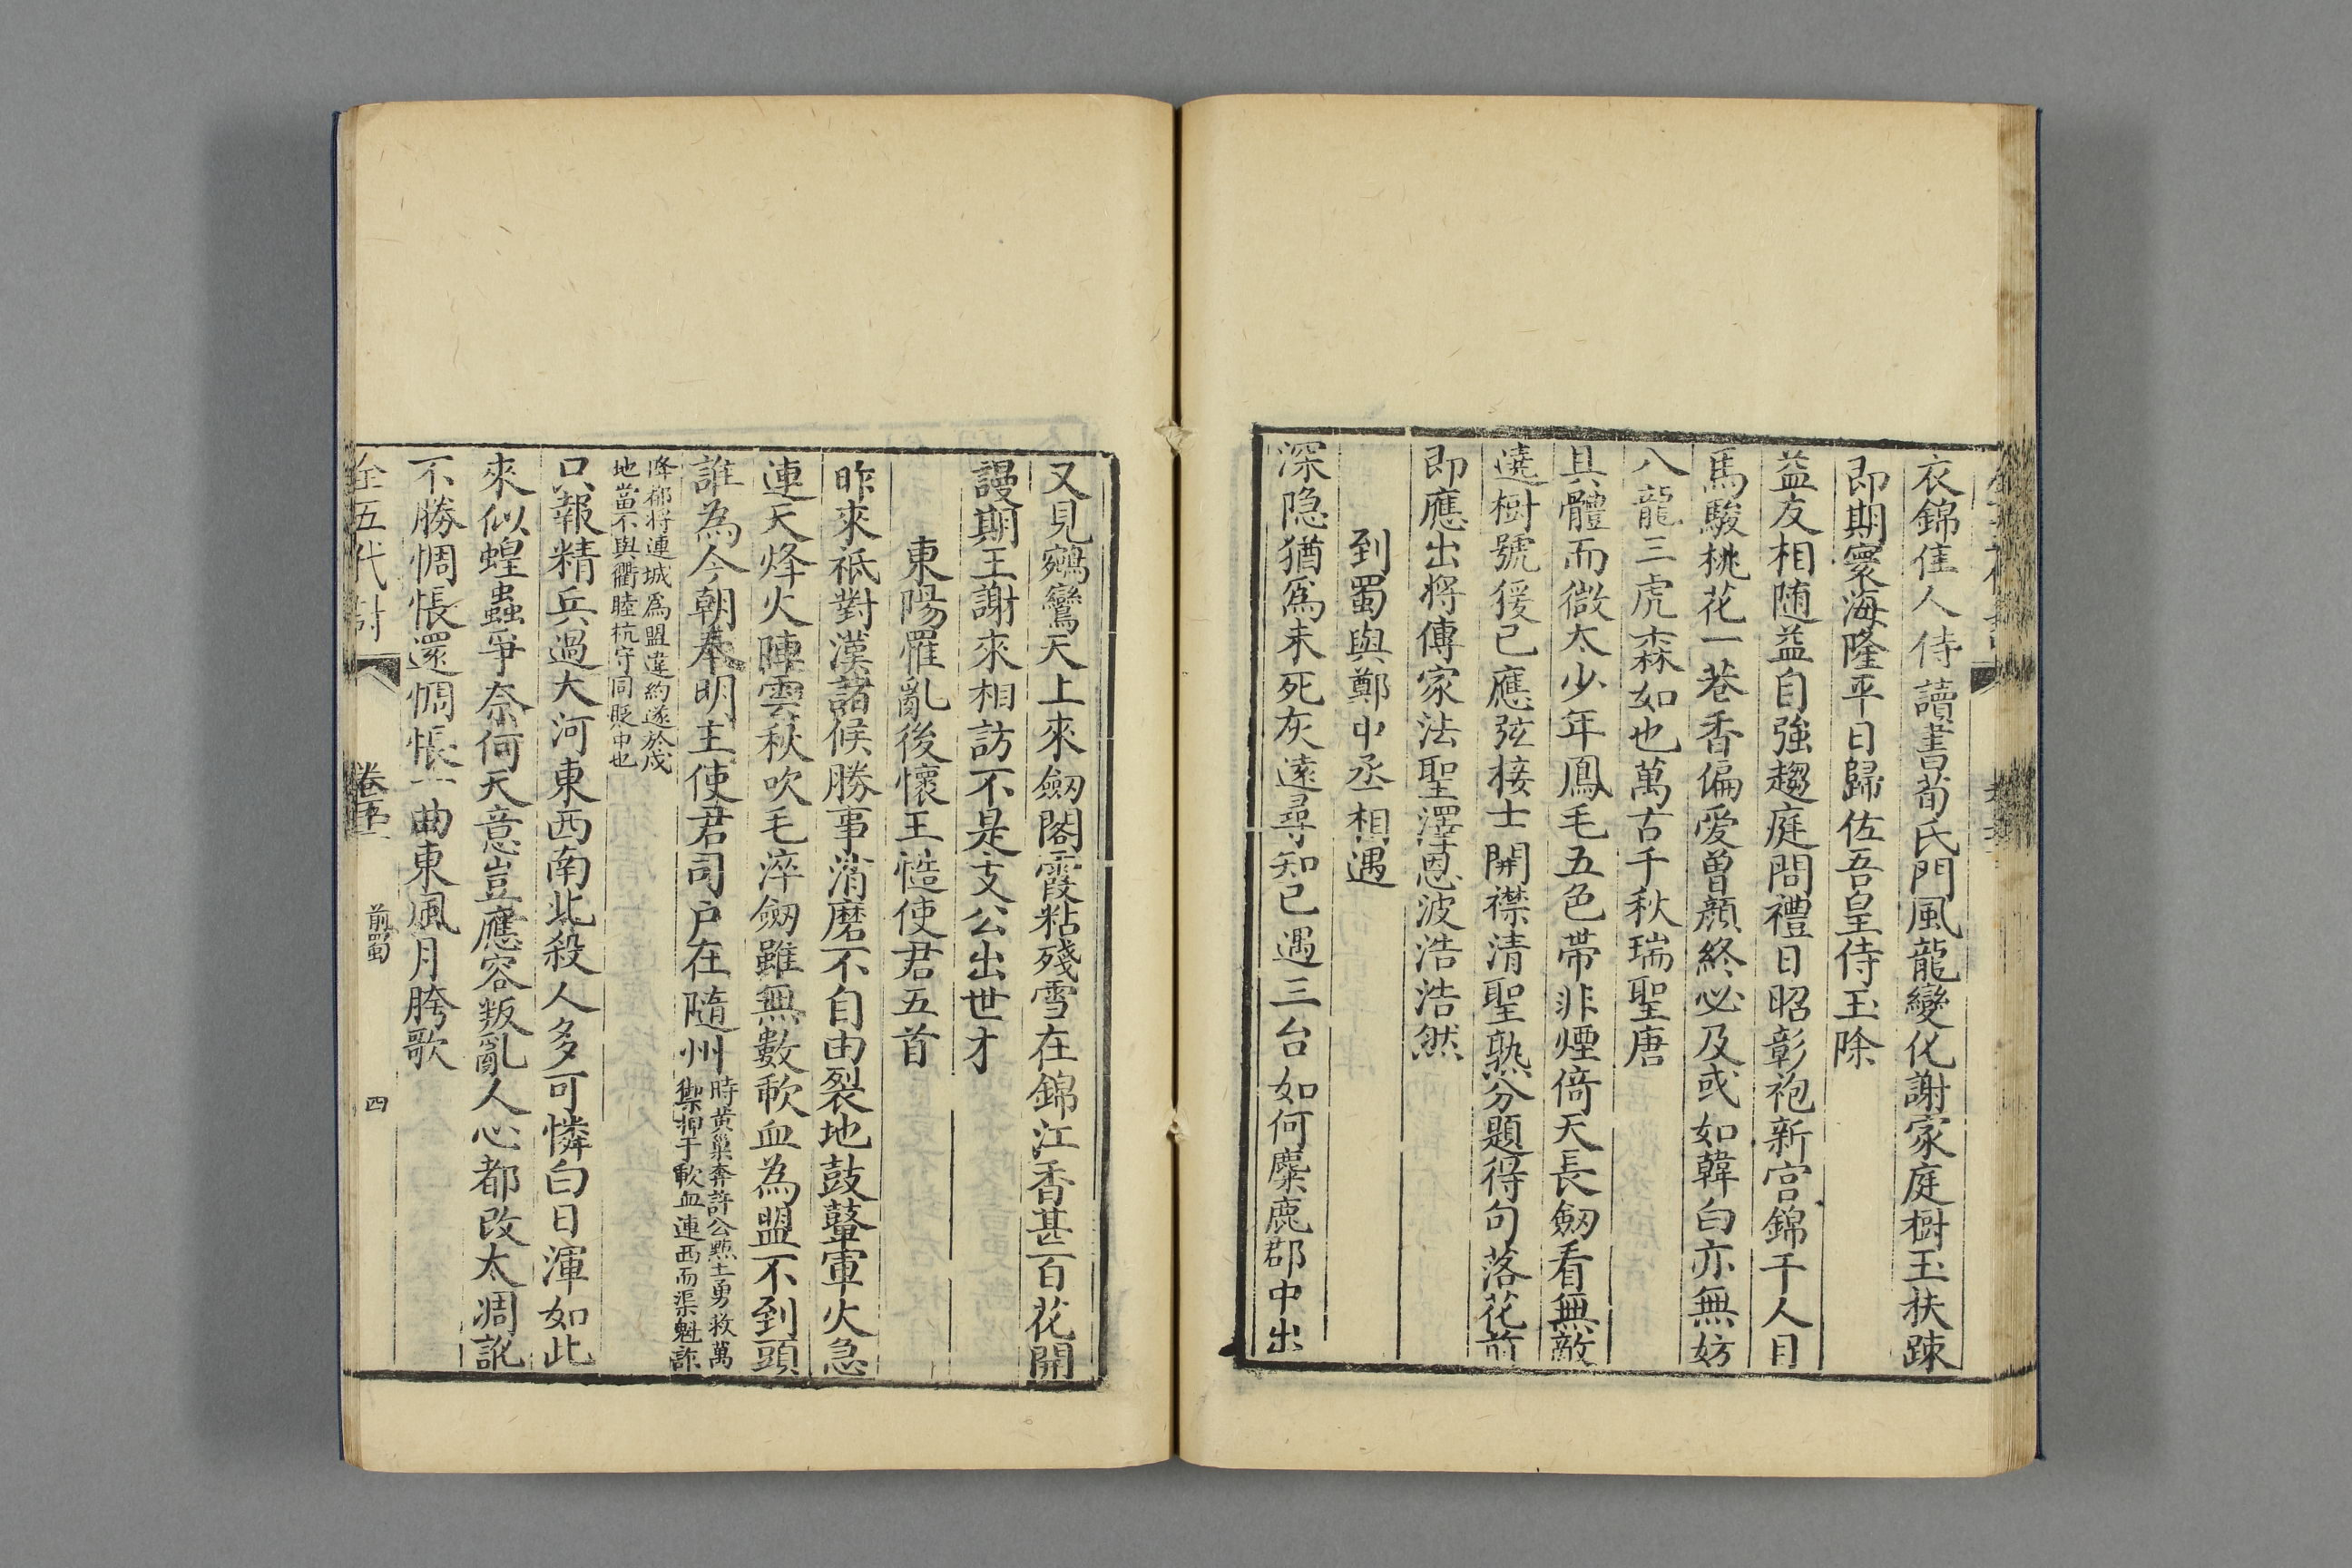 衣錦隹人侍讀書荀氏門風龍變化謝家庭樹玉扶踈
即期寰海隆平日歸佐吾皇侍玉除
益友相随益自強趨庭問禮日昭彰袍新宫錦千人目
馬駿桃花一巷香偏愛曽顔終必及或如韓白亦無妨
八龍三虎森如也萬古千秋瑞聖唐
具體而微太少年鳳毛五色帶非煙倚天長劒看無敵
遶樹號猨已應弦接士開襟清聖熟分題得句落花前
即應出將傳家法聖澤恩波浩浩然
到蜀與鄭中丞相遇
深隐猶爲未死灰遠尋知已遇三台如何麋鹿郡中出
又見鵷鸞天上來劒閣霞粘殘雪在錦江香甚百花開
謾期王謝來相訪不是支公出世才
東陽罹亂後懷王慥使君五首
昨來祇對漢諸候勝事消磨不自由裂地鼓鼙軍火急
連天烽火陣雲秋吹毛淬劒雖無數歃血為盟不到頭
誰為今朝奉明主使君司户在隨州
時黄巢奔許公㸃士勇救萬
禦捍于歃血連西而渠魁詐
降郁将連城爲盟違約遂於戍
地當不與衢睦杭守同貶中也
只報精兵過大河東西南北殺人多可憐白日渾如此
來似蝗蟲爭奈何天意豈應容叛亂人心都改太凋訛
不勝惆悵還惆悵一曲東風月胯歌
五代詩
卷
前蜀
四